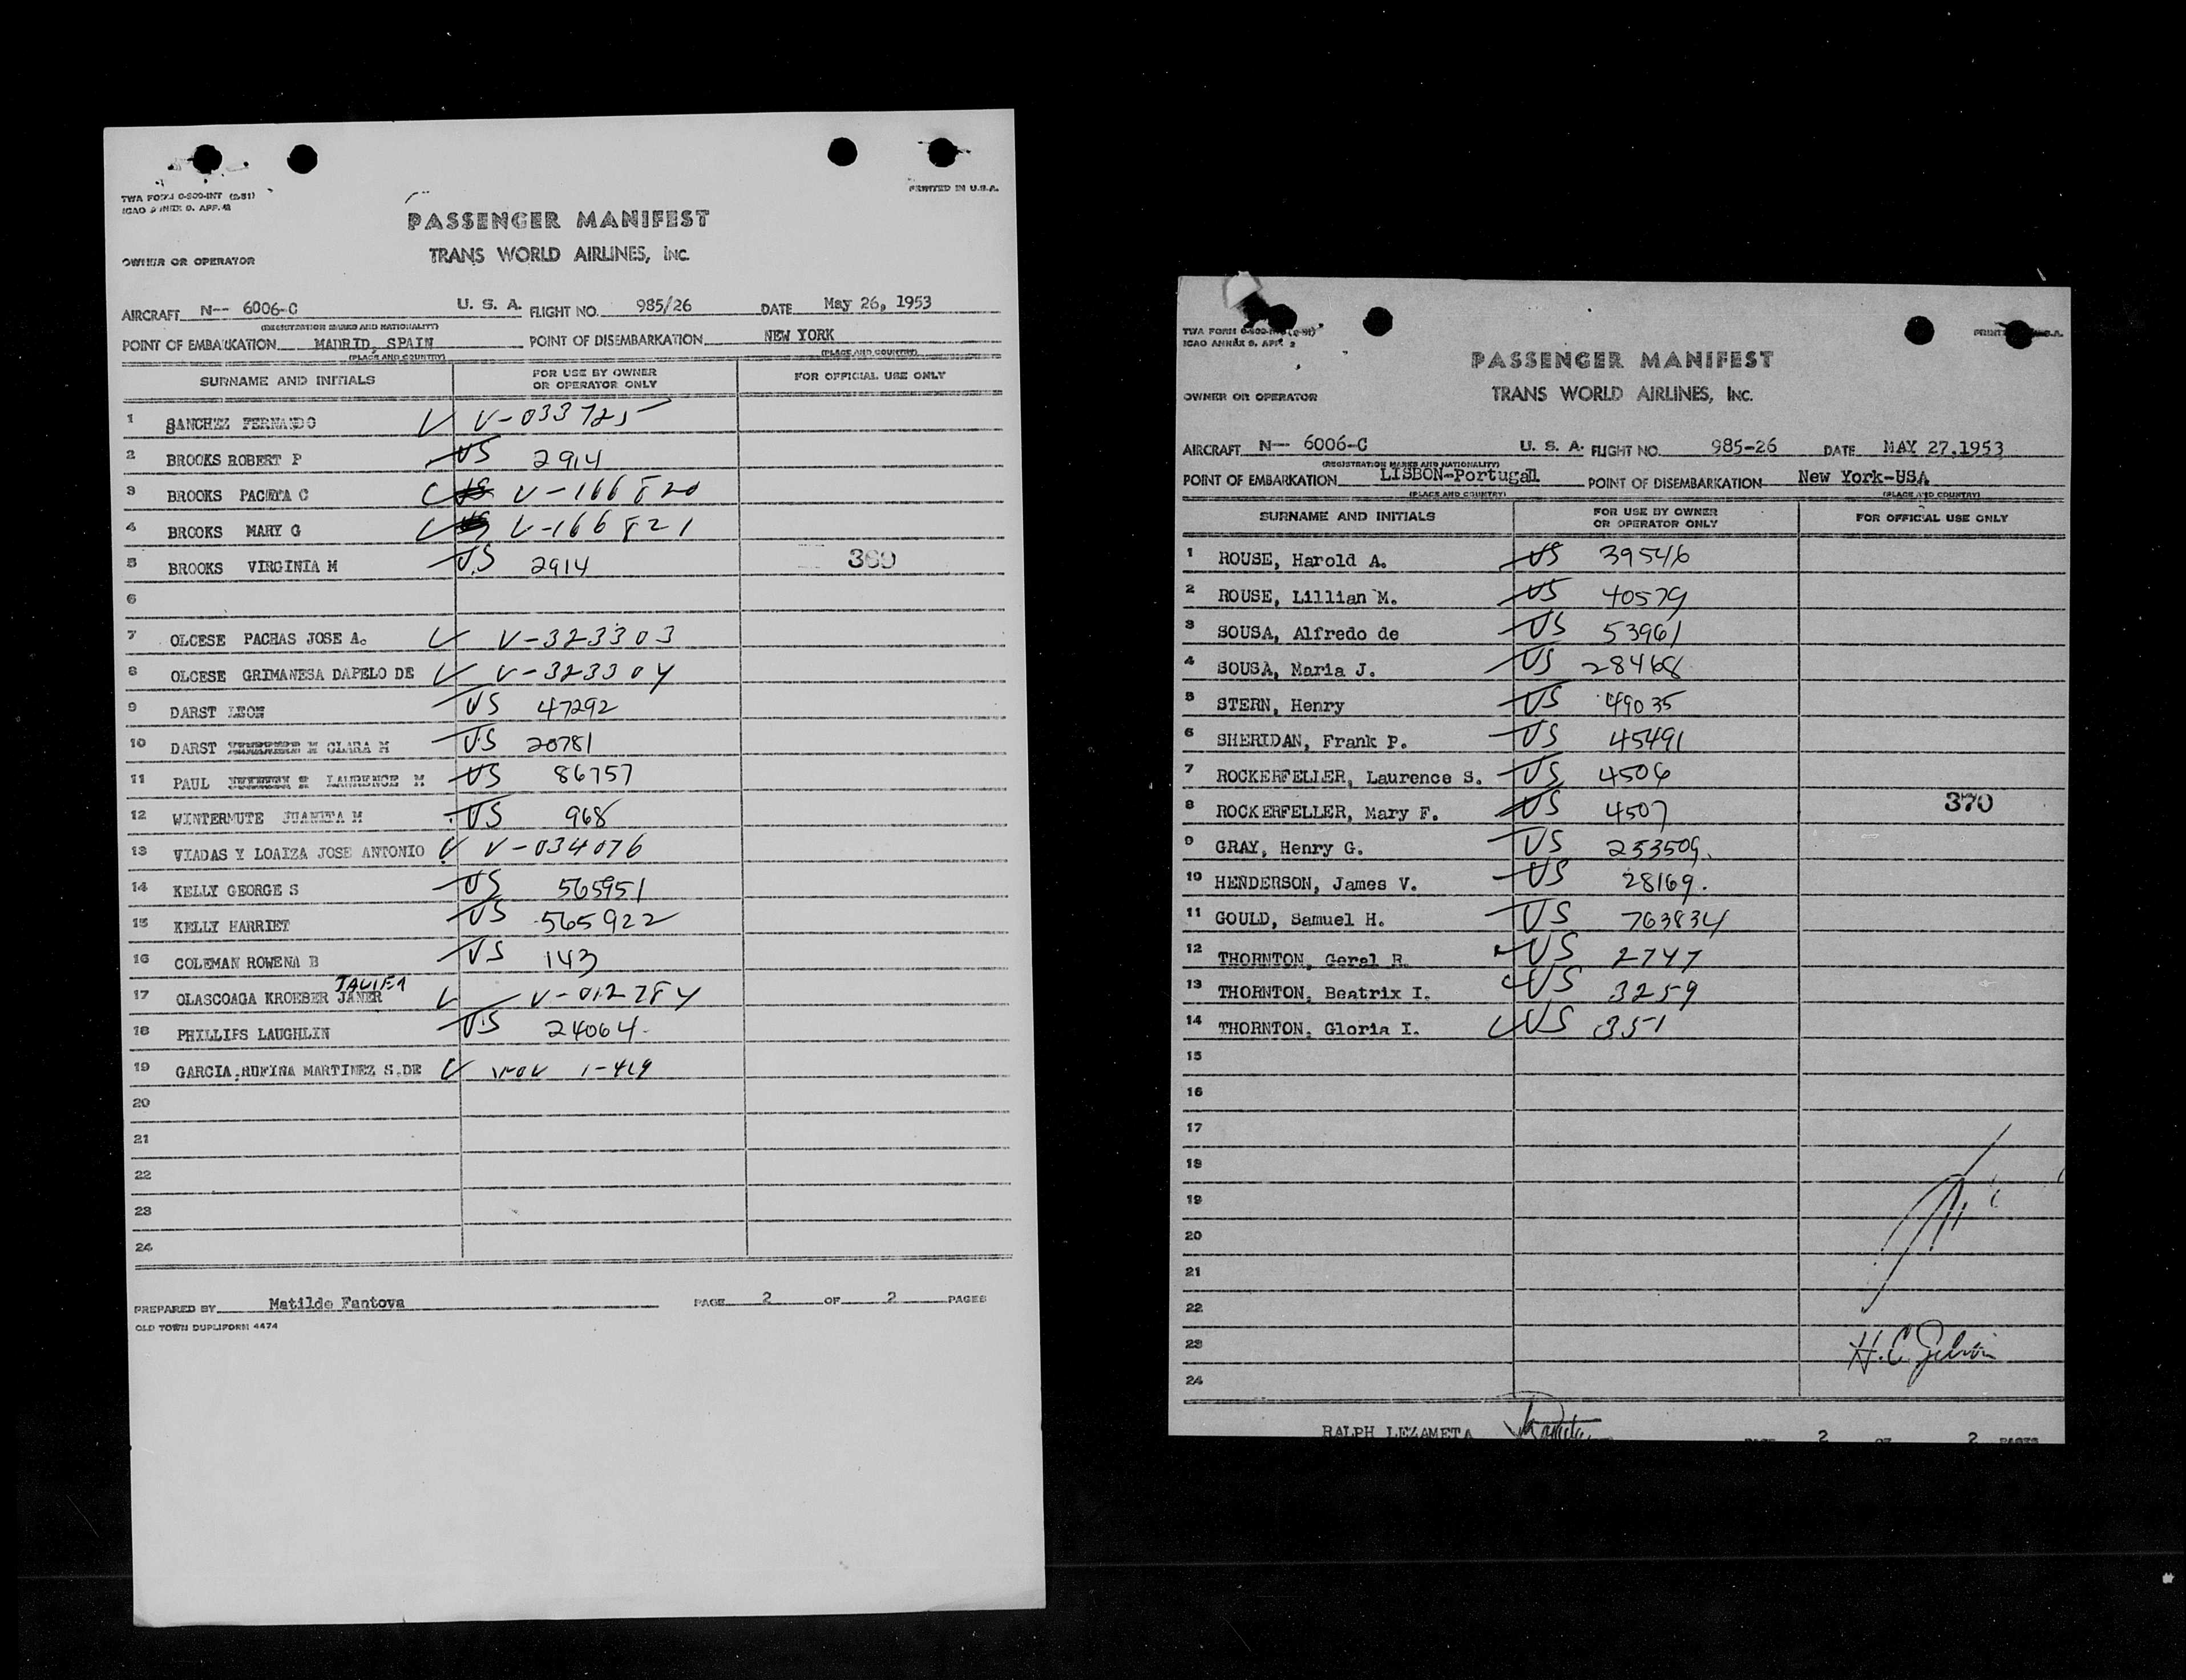 TWA FORM O-800-INT (2-51)
PRINTED IN U.S.A.
ICAO ANNEX 9. APP. 2
PASSENGER MANIFEST
OWNER OR OPERATOR TRANS WORLD AIRLINES, INC.
AIRCRAFT N-- 6006-C U. S. A. FLIGHT NO. 985/26 DATE May 26, 1953
(REGISTRATION MARKS AND NATIONALITY)
POINT OF EMBARKATION MADRID, SPAIN POINT OF DISEMBARKATION NEW YORK
(PLACE AND COUNTRY) (PLACE AND COUNTRY)
SURNAME AND INITIALS FOR USE BY OWNER OR OPERATOR ONLY FOR OFFICIAL USE ONLY
1 SANCHEZ FERNANDO V V-033725
2 BROOKS ROBERT P US 2914
3 BROOKS PACHTA C V-166820
4 BROOKS MARY G V-166821
5 BROOKS VIRGINIA M U.S 2914 360
6
7 OLCESE PACHAS JOSE A. V V-323303
8 OLCESE GRIMANESA DAPELO DE V V-323304
9 DARST LEON US 47292
10 DARST M CLARA M US 20781
11 PAUL LAURENCE M US 86757
12 WINTERMUTE JUANITA M US 968
13 VIADAS Y LOAIZA JOSE ANTONIO V V-034076
14 KELLY GEORGE S US 565951
15 KELLY HARRIET US 565922
16 COLEMAN ROWENA B US 143
JAVIER
17 OLASCOAGA KROEBER JANER V V-012784
18 PHILLIPS LAUGHLIN U.S 24064
19 GARCIA,RUFINA MARTINEZ S.DE V 1-419
20
21
22
23
24
PREPARED BY Matilde Fantova PAGE 2 OF 2 PAGES
OLD TOWN DUPLIFORM 4474
TWA FORM O-800-INT (2-51)
ICAO ANNEX 9. APP. 2
PASSENGER MANIFEST
OWNER OR OPERATOR TRANS WORLD AIRLINES, INC.
AIRCRAFT N-- 6006-C U. S. A. FLIGHT NO. 985-26 DATE MAY 27.1953
(REGISTRATION MARKS AND NATIONALITY)
POINT OF EMBARKATION LISBON-Portugal POINT OF DISEMBARKATION New York-USA
(PLACE AND COUNTRY) (PLACE AND COUNTRY)
SURNAME AND INITIALS FOR USE BY OWNER OR OPERATOR ONLY FOR OFFICIAL USE ONLY
1 ROUSE, Harold A. US 39546
2 ROUSE, Lillian M. US 40579
3 SOUSA, Alfredo de US 53961
4 SOUSA, Maria J. US 28468
5 STERN, Henry US 49035
6 SHERIDAN, Frank P. US 45491
7 ROCKERFELLER, Laurence S. US 4506
8 ROCKERFELLER, Mary F. US 4507 370
9 GRAY, Henry G. US 253509.
10 HENDERSON, James V. US 28169.
11 GOULD, Samuel H. US 763834
12 THORNTON, Geral R. US 2747
13 THORNTON, Beatrix I. US 3259
14 THORNTON, Gloria I. US 351
15
16
17
18
19
20
21
22
23
24
RALPH LEZAMETA PAGE 2 OF 2 PAGES